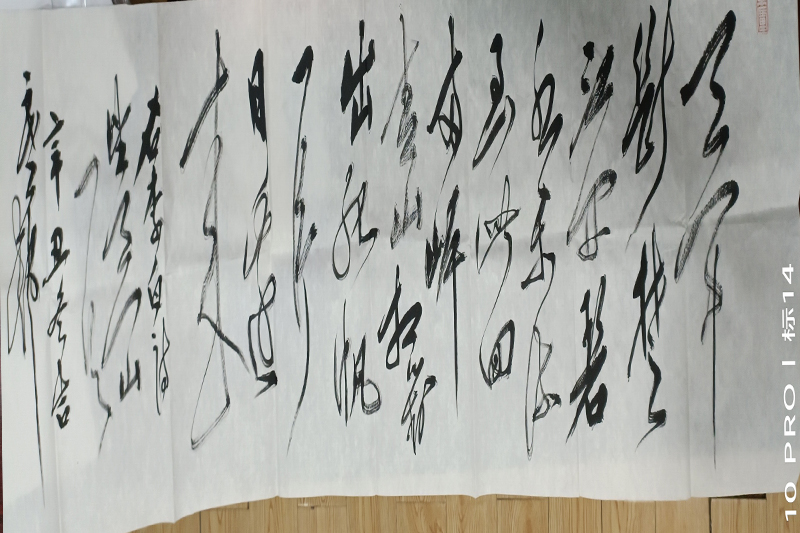 天门中
断楚
江开碧
水东流
至此回
两岸
青山相对
出孤帆
一片
日边
来
右李白诗
望天门山
辛丑冬吉
10 PRO | 标14